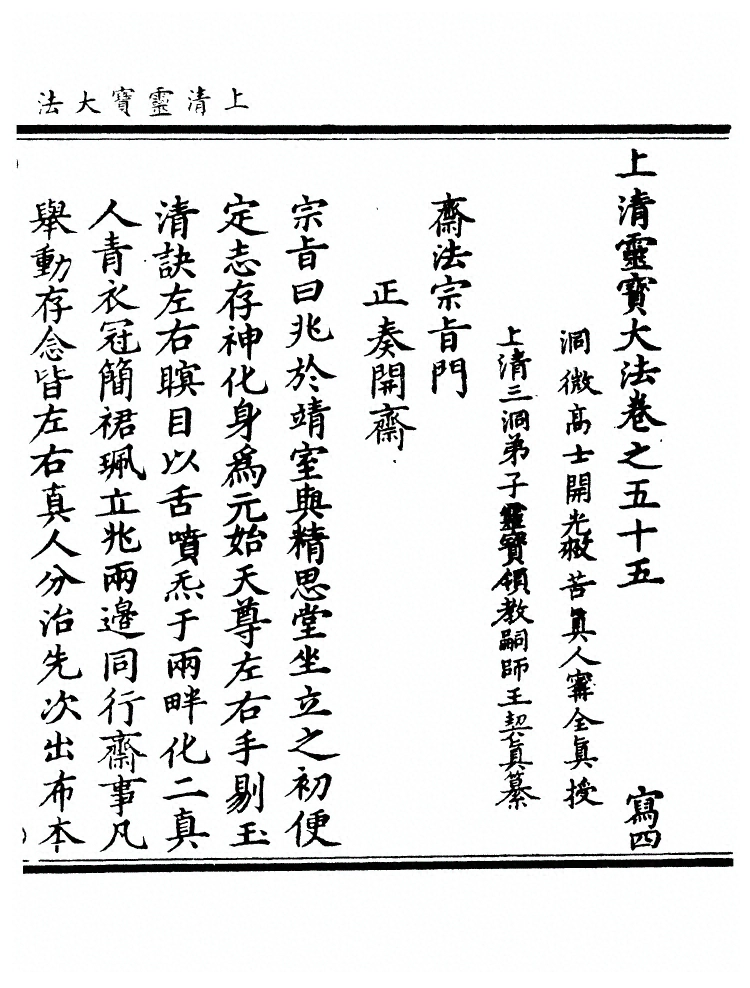 上清靈寶大法
上清靈寶大法卷之五十五 寫四
洞微高士開光救苦眞人寗全眞授
上清三洞弟子靈寶領教嗣師王契眞纂
齋法宗旨門
正奏開齋
宗旨曰兆於靖室與精思堂坐立之初便
定志存神化身爲元始天尊左右手剔玉
清訣左右瞑目以舌噴炁于兩畔化二真
人青衣冠簡裙珮立兆兩邊同行齋事凡
舉動存念皆左右真人分治先次出布本